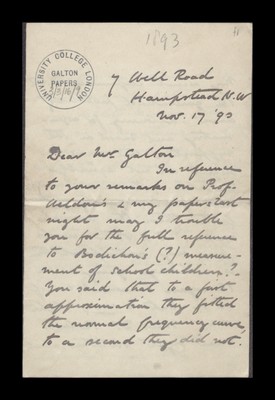 1893
UNIVERSITY COLLEGE LONDON
GALTON
PAPERS
7 Well Road
Hampstead N.W
Nov. 17 '93
Dear Mr Galton
In reference
to your remarks on Prof.
Weldon's & my papers last
night may I trouble
you for the full reference
to Bodichon's (?) measure-
ment of school children?
You said that to a first
approximation they fitted
the normal frequency curve,
to a second they did not.